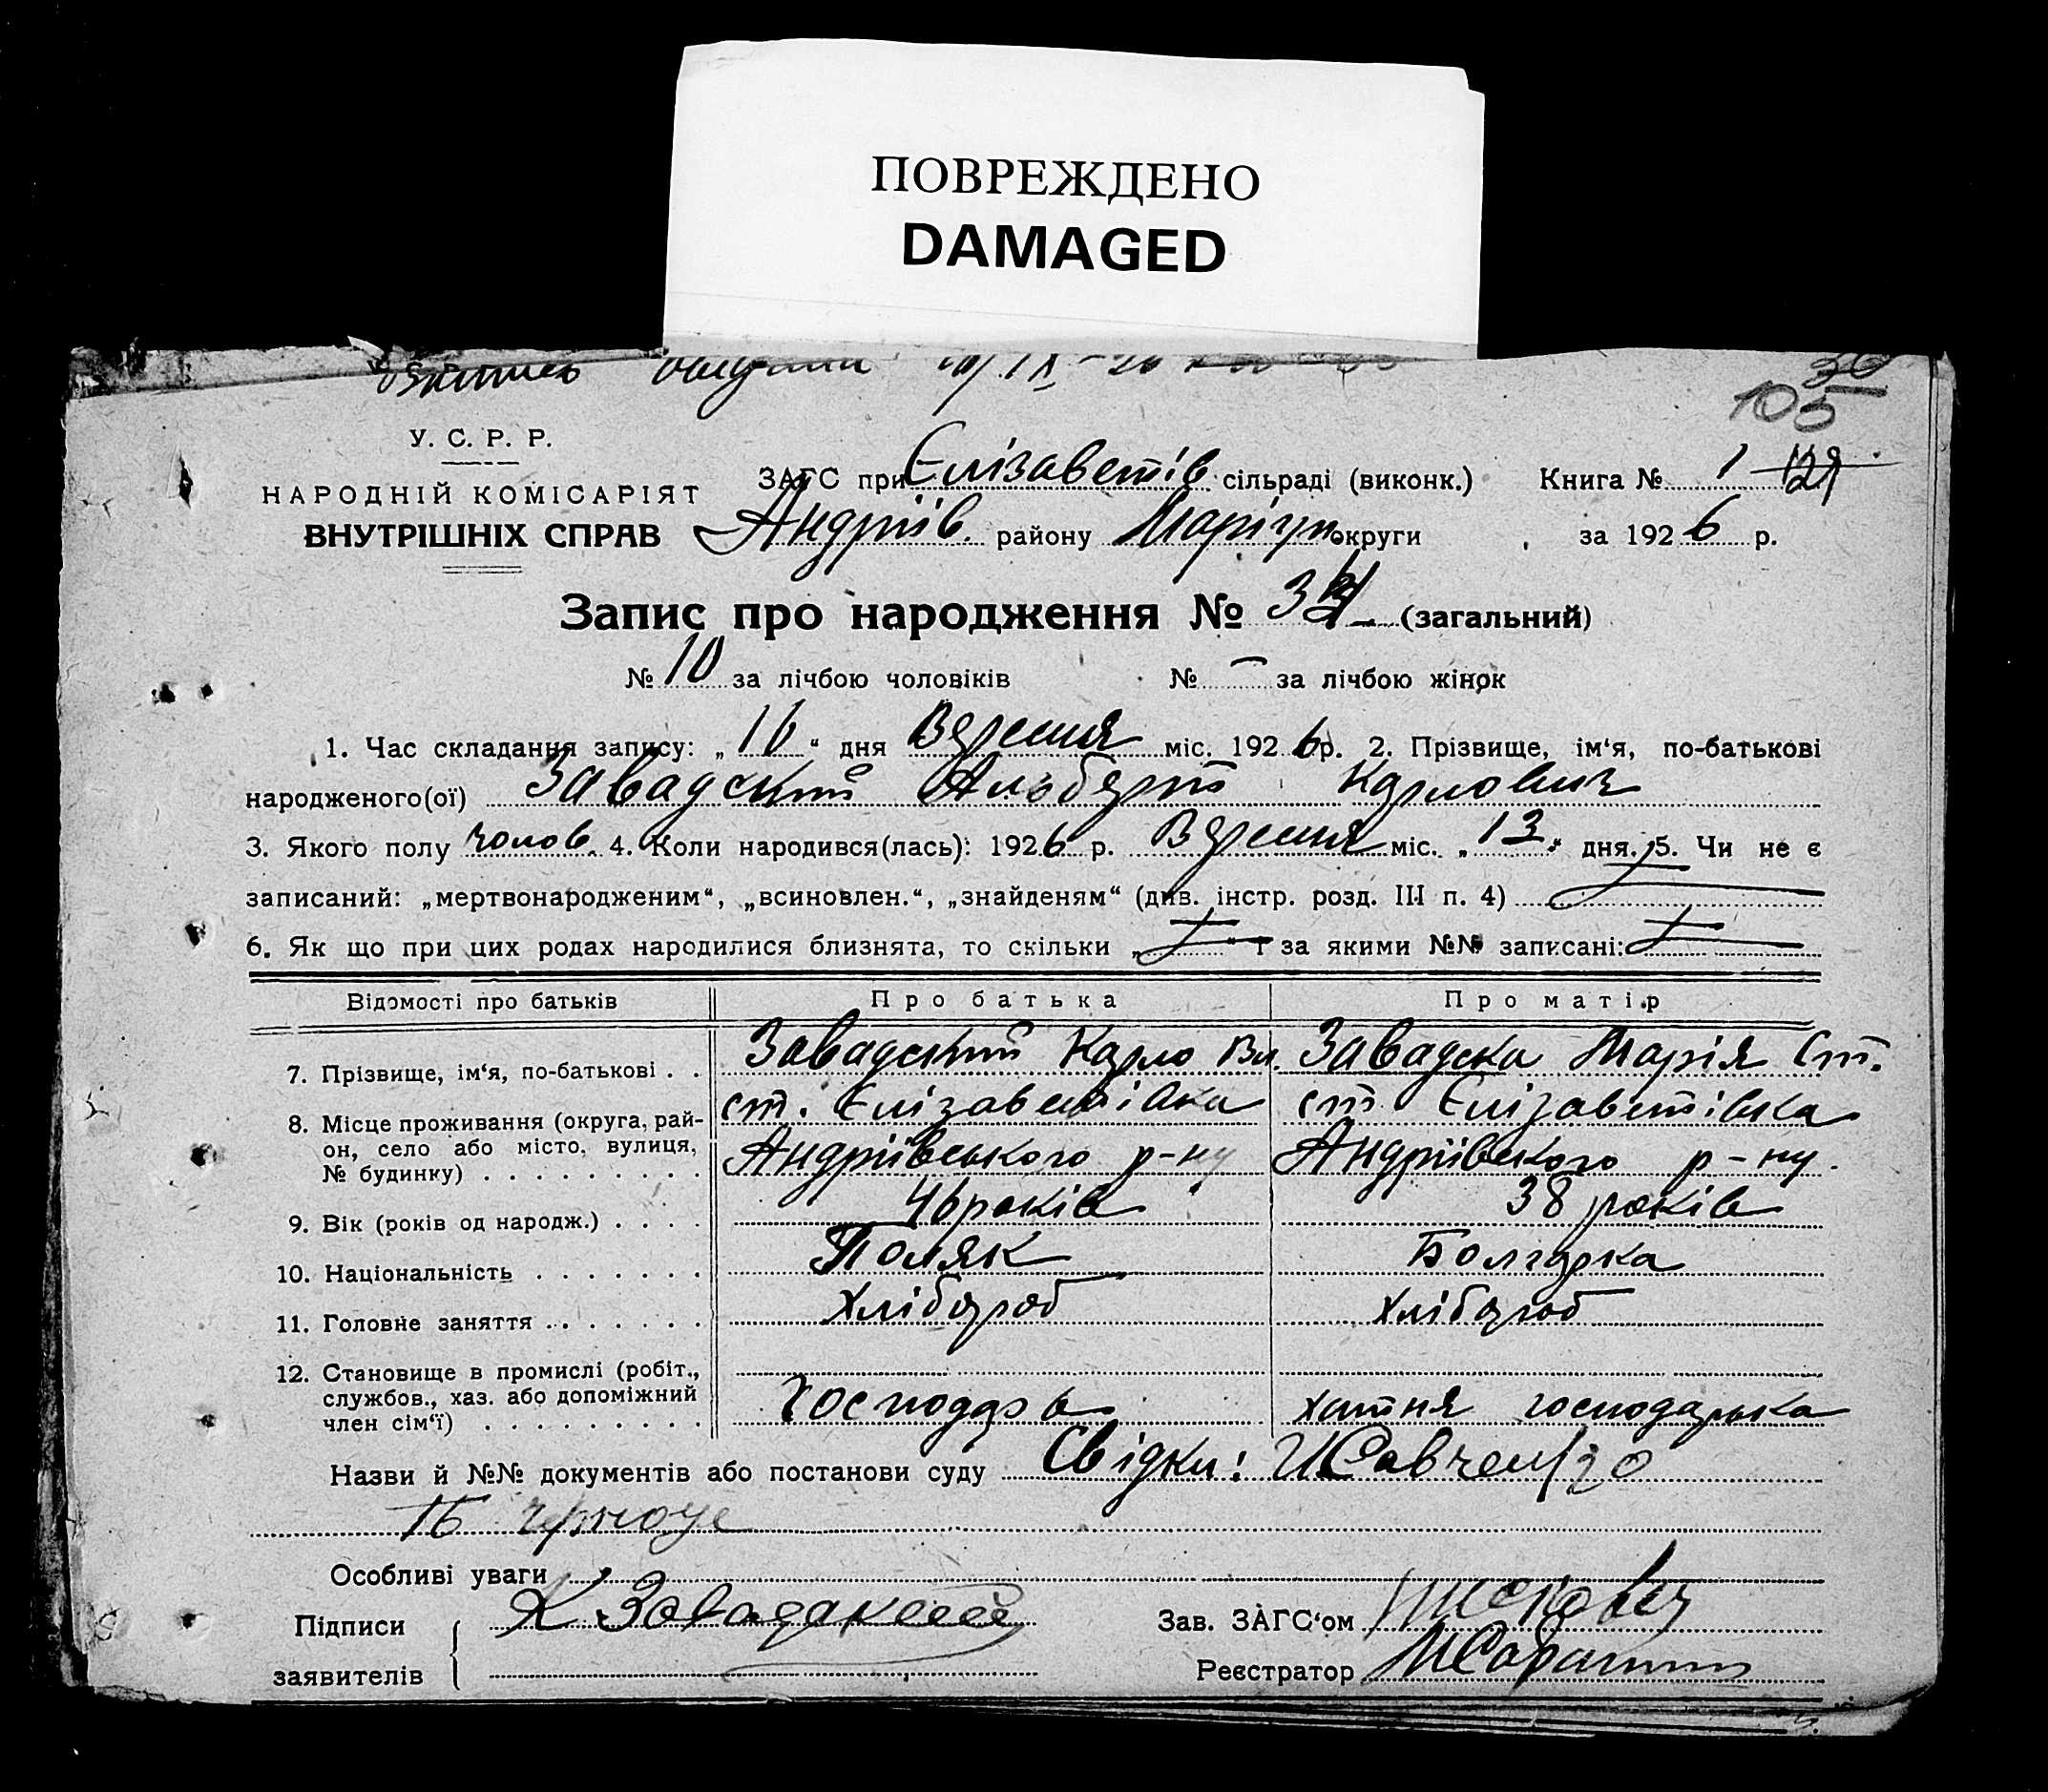 ПОВРЕЖДЕНО
DAMAGED
105
У. С. Р. Р.
НАРОДНІЙ КОМІСАРІЯТ
ВНУТРІШНІХ СПРАВ
ЗАГС при Єлізаветів сільраді (виконк.) Книга № 1
Андріїв. району Маріуп округи за 1926 р.
Запис про народження № (загальний)
№ 10 за лічбою чоловіків № – за лічбою жінок
1. Час складання запису: „16“ дня Вересня міс. 1926 р. 2. Прізвище, ім‘я, по-батькові
народженого(ої) Завадський Альберт Карлович
3. Якого полу чолов. 4. Коли народився(лась): 1926 р. Вересня міс. „13“ дня. 5. Чи не є
записаний: „мертвонародженим“, „всиновлен.“, „знайденям“ (див. інстр. розд. III п. 4)
6. Як що при цих родах народилися близнята, то скільки „ “ і за якими №№ записані:
Відомості про батьків Про батька Про матір
7. Прізвище, ім‘я, по-батькові . . Завадський Карло Вл. Завадска Марія Ст.
8. Місце проживання (округа, рай-
он, село або місто, вулиця,
№ будинку) . . . . . . . . .
ст. Єлізаветівка ст. Єлізаветівка
Андріївського р-ну Андріївського р-ну.
9. Вік (років од народж.) . . . . 46 років 38 років
10. Національність . . . . . . . Поляк Болгарка
11. Головне заняття . . . . . . . Хлібороб Хлібороб
12. Становище в промислі (робіт.,
службов., хаз. або допоміжний
член сім‘ї) . . . . . . . . .
Господарь хатня господарька
Назви й №№ документів або постанови суду Свідки: И Савченко
Особливі уваги
Підписи
заявителів
К Завадский
Зав. ЗАГС‘ом
Реєстратор